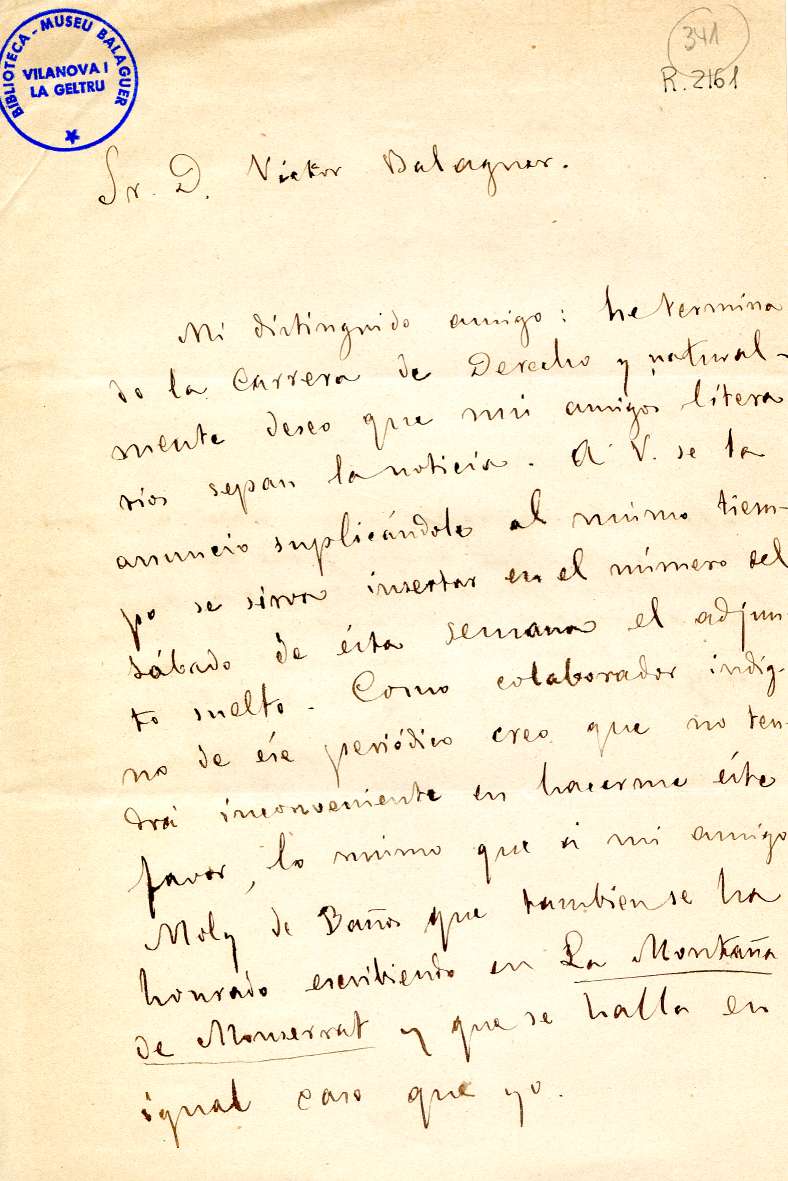 BIBLIOTECA - MUSEU BALAGUER
VILANOVA I
LA GELTRU
341
R. 2161
Sr. D. Víctor Balaguer.
Mi distinguido amigo: he termina
do la carrera de Derecho y natural-
mente deseo que mis amigos litera
rios sepan la noticia. A V. se la
anuncio suplicándole al mismo tiem-
po se sirva insertar en el número del
sábado de ésta semana el adjun-
to suelto. Como colaborador indig-
no de ése periódico creo que no ten-
drá inconveniente en hacerme éste
favor, lo mismo que a mi amigo
Moly de Baños que tambien se ha
honrado escribiendo en La Montaña
de Monserrat y que se halla en
igual caso que yo.